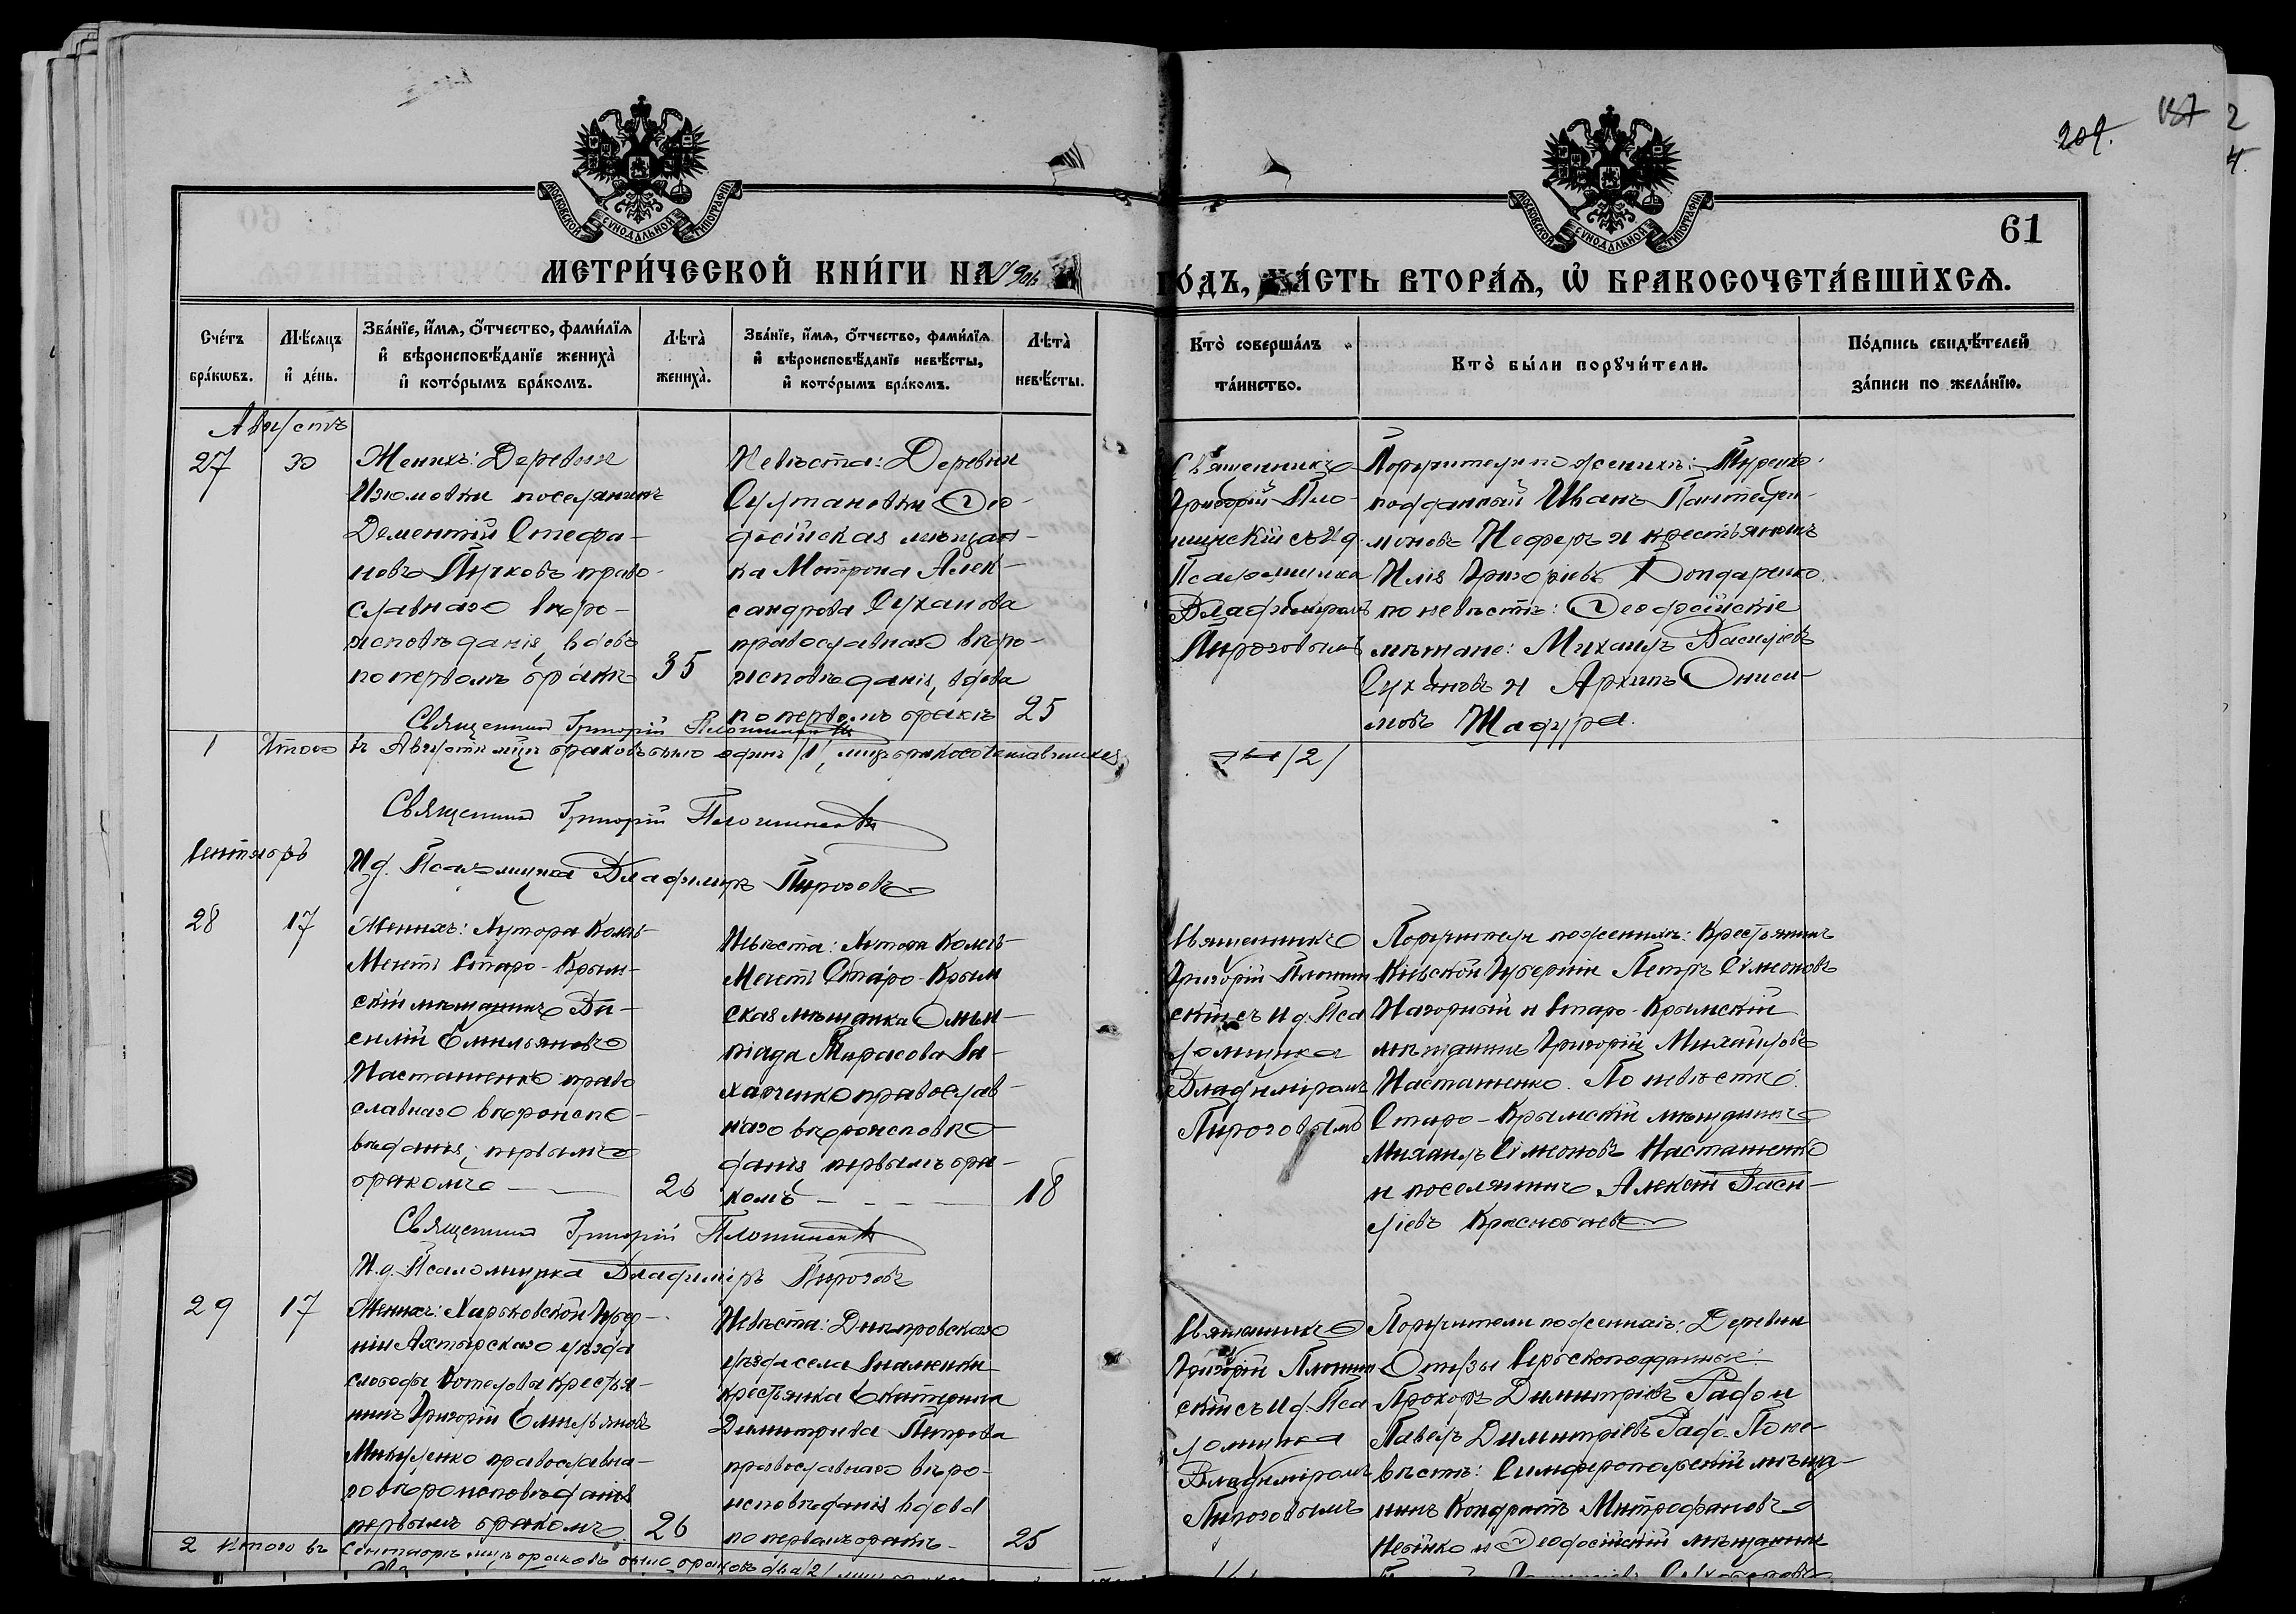 187
209.
2
4.
МОСКОВСКОЙ СѴНОДАЛЬНОЙ ТИПОГРАФІИ
МОСКОВСКОЙ СѴНОДАЛЬНОЙ ТИПОГРАФІИ
61
МЕТРИ́ЧЕСКОЙ КНИ́ГИ НА 1906
ГО́ДЪ, ЧА́СТЬ ВТОРА́Я, Ѡ БРАКОСОЧЕТА́ВШИХСЯ.
Сче́тъ бра́кωвъ.
Мѣ́сяцъ и де́нь.
Зва́нїе, и́мя, о́тчество, фами́лїя и вѣроисповѣ́данїе жениха̀ и кото́рымъ бра́комъ.
Лѣта̀ жениха̀.
Зва́нїе, и́мя, о́тчество, фами́лїя и вѣроисповѣ́данїе невѣ́сты, и кото́рымъ бра́комъ.
Лѣта̀ невѣ́сты.
Кто̀ соверша́лъ та́инство.
Кто̀ бы́ли порꙋчи́тели.
По́дпись свидѣ́телей за́писи по жела́нїю.
Августъ
27
30
Женихъ: Деревни
Изюмовки поселянинъ
Дементій Стефа-
новъ Пучковъ право-
славнаго вѣро-
исповѣданія, вдовъ
по первомъ бракѣ
35
Невѣста: Деревни
Султановки Ѳео-
досійская мѣщан-
ка Мотрона Алек-
сандрова Суханова
православнаго вѣро-
исповѣданія, вдова
по первомъ бракѣ
25
Священникъ
Григорій Пло-
щинскій съ И д.
Псаломщика
Владиміромъ
Пироговымъ
Поручители по женихѣ: Турецко-
подданный Иванъ Пантелей-
моновъ Неферъ и крестьянинъ
Илія Григоріевъ Бондаренко.
по невѣстѣ: Ѳеодосійскіе
мѣщане: Михаилъ Василіевъ
Сухановъ и Архипъ Ониси-
мовъ Шадура.
Священникъ Григорій Площинскій
1 Итого въ Августѣ мцѣ браковъ было одинъ /1/, лицъ бракосочетавшихся
/2/
Священникъ Григорій Площинскій
Сентябрь
И д. Псаломщика Владиміръ Пироговъ
28
17
Женихъ: Хутора Колъ-
Мечеть Старо-Крым-
скій мѣщанинъ Ва-
силій Емильяновъ
Насташенко право
славнаго вѣроиспо-
вѣданія, первымъ
бракомъ
26
Невѣста: Хутора Колъ-
Мечеть Старо-Крым
ская мѣщанка Олим-
піада Тарасова За-
харченко православ-
наго вѣроисповѣ-
данія первымъ бра-
комъ
18
Священникъ
Григорій Площин
скій съ И д. Пса
ломщика
Владиміромъ
Пироговымъ
Поручители по женихѣ: Крестьянинъ
Кіевской Губерніи Петръ Сѵмеоновъ
Нагорный и Старо-Крымскій
мѣщанинъ Григорій Михайловъ
Насташенко. По невѣстѣ:
Старо-Крымскій мѣщанинъ
Михаилъ Сѵмеоновъ Насташенко
и поселянинъ Алексѣй Васи-
ліевъ Краснобаевъ
Священникъ Григорій Площинскій
И.д. Псаломщика Владиміръ Пироговъ
29
17
Женихъ: Харьковской Губер-
ніи Ахтырскаго уѣзда
слободы Котельвы крестья-
нинъ Григорій Емильяновъ
Микуленко православна-
го вѣроисповѣданія
первымъ бракомъ
26
Невѣста: Днѣпровскаго
уѣзда села Знаменки
крестьянка Екатерина
Димитріева Петрова
православнаго вѣро-
исповѣданія вдова
по первомъ бракѣ
25
Священникъ
Григорій Площин
скій съ И д. Пса
ломщика
Владиміромъ
Пироговымъ
Поручители по женихѣ: Деревни
Отузы Сербскоподданные:
Прохоръ Димитріевъ Радо и
Павелъ Димитріевъ Радо. По не-
вѣстѣ: Симферопольскій мѣща-
нинъ Кондратъ Митрофановъ
и Ѳеодосійскій мѣщанинъ
2 Итого въ Сентябрѣ мцѣ браковъ было браковъ два /2/